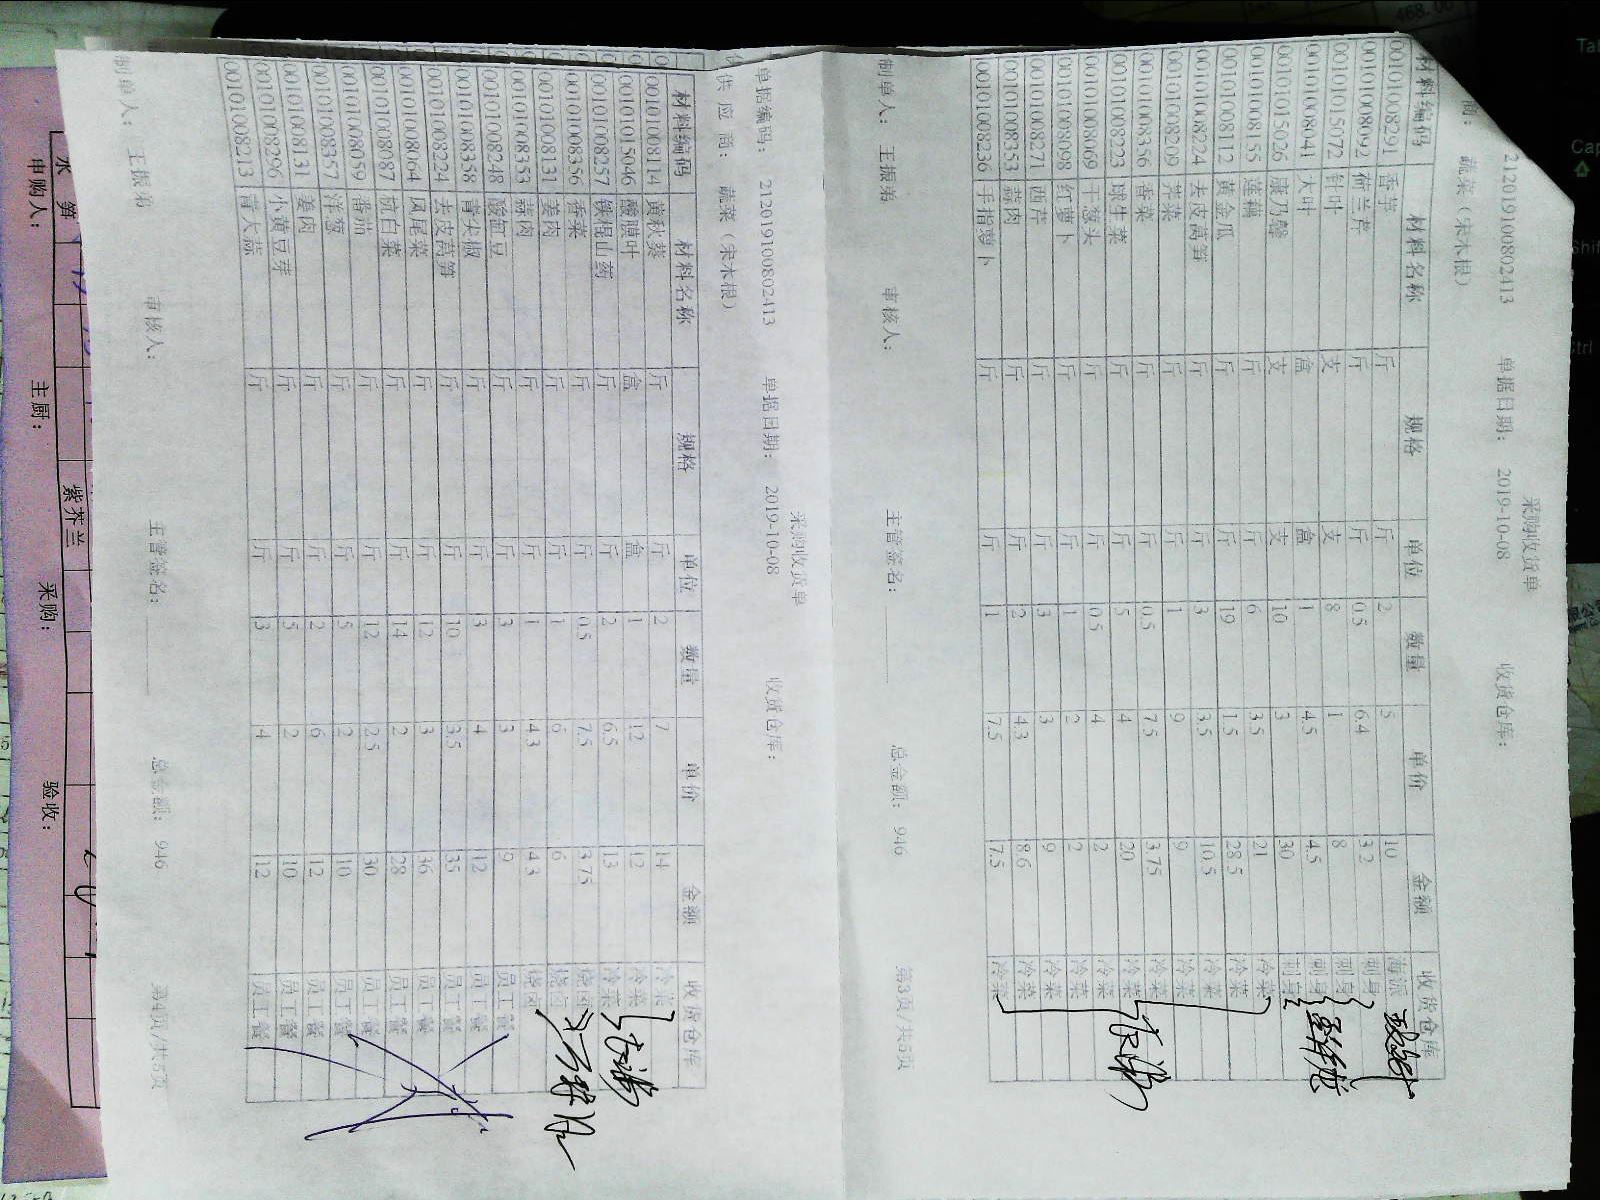 采购收货单
212019100802413 单据日期： 2019-10-08 收货仓库：
商： 蔬菜（宋木根）
材料编码 材料名称 规格 单位 数量 单价 金额 收货仓库
00101008291 香芋 斤 斤 2 5 10 海派
00101008092 荷兰芹 斤 斤 0.5 6.4 3.2 刺身
00101015072 针叶 支 支 8 1 8 刺身
00101008041 大叶 盒 盒 1 4.5 4.5 刺身
00101015026 康乃馨 支 支 10 3 30 刺身
00101008155 莲藕 斤 斤 6 3.5 21 冷菜
00101008112 黄金瓜 斤 斤 19 1.5 28.5 冷菜
00101008224 去皮莴笋 斤 斤 3 3.5 10.5 冷菜
00101008209 芥菜 斤 斤 1 9 9 冷菜
00101008356 香菜 斤 斤 0.5 7.5 3.75 冷菜
00101008223 球生菜 斤 斤 5 4 20 冷菜
00101008069 干葱头 斤 斤 0.5 4 2 冷菜
00101008098 红萝卜 斤 斤 1 2 2 冷菜
00101008271 西芹 斤 斤 3 3 9 冷菜
00101008353 蒜肉 斤 斤 2 4.3 8.6 冷菜
00101008236 手指萝卜 斤 斤 1 7.5 7.5 冷菜
制单人： 王振弟 审核人： 主管签名： 总金额： 946 第3页/共5页
采购收货单
单据编码： 212019100802413 单据日期： 2019-10-08 收货仓库：
供应商： 蔬菜（宋木根）
材料编码 材料名称 规格 单位 数量 单价 金额 收货仓库
00101008114 黄秋葵 斤 斤 2 7 14 冷菜
00101015046 酸膜叶 盒 盒 1 12 12 冷菜
00101008257 铁棍山药 斤 斤 2 6.5 13 冷菜
00101008356 香菜 斤 斤 0.5 7.5 3.75 烧卤
00101008131 姜肉 斤 斤 1 6 6 烧卤
00101008353 蒜肉 斤 斤 1 4.3 4.3 烧卤
00101008248 酸豇豆 斤 斤 3 3 9 员工餐
00101008358 青尖椒 斤 斤 3 4 12 员工餐
00101008224 去皮莴笋 斤 斤 10 3.5 35 员工餐
00101008064 凤尾菜 斤 斤 12 3 36 员工餐
00101008087 杭白菜 斤 斤 14 2 28 员工餐
00101008059 番茄 斤 斤 12 2.5 30 员工餐
00101008357 洋葱 斤 斤 5 2 10 员工餐
00101008131 姜肉 斤 斤 2 6 12 员工餐
00101008296 小黄豆芽 斤 斤 5 2 10 员工餐
00101008213 青大蒜 斤 斤 3 4 12 员工餐
制单人： 王振弟 审核人： 主管签名： 总金额： 946 第4页/共5页
水笋 紫芥兰
申购人： 主厨： 采购： 验收：
468.00
Tab
Cap
Shif
Ctrl